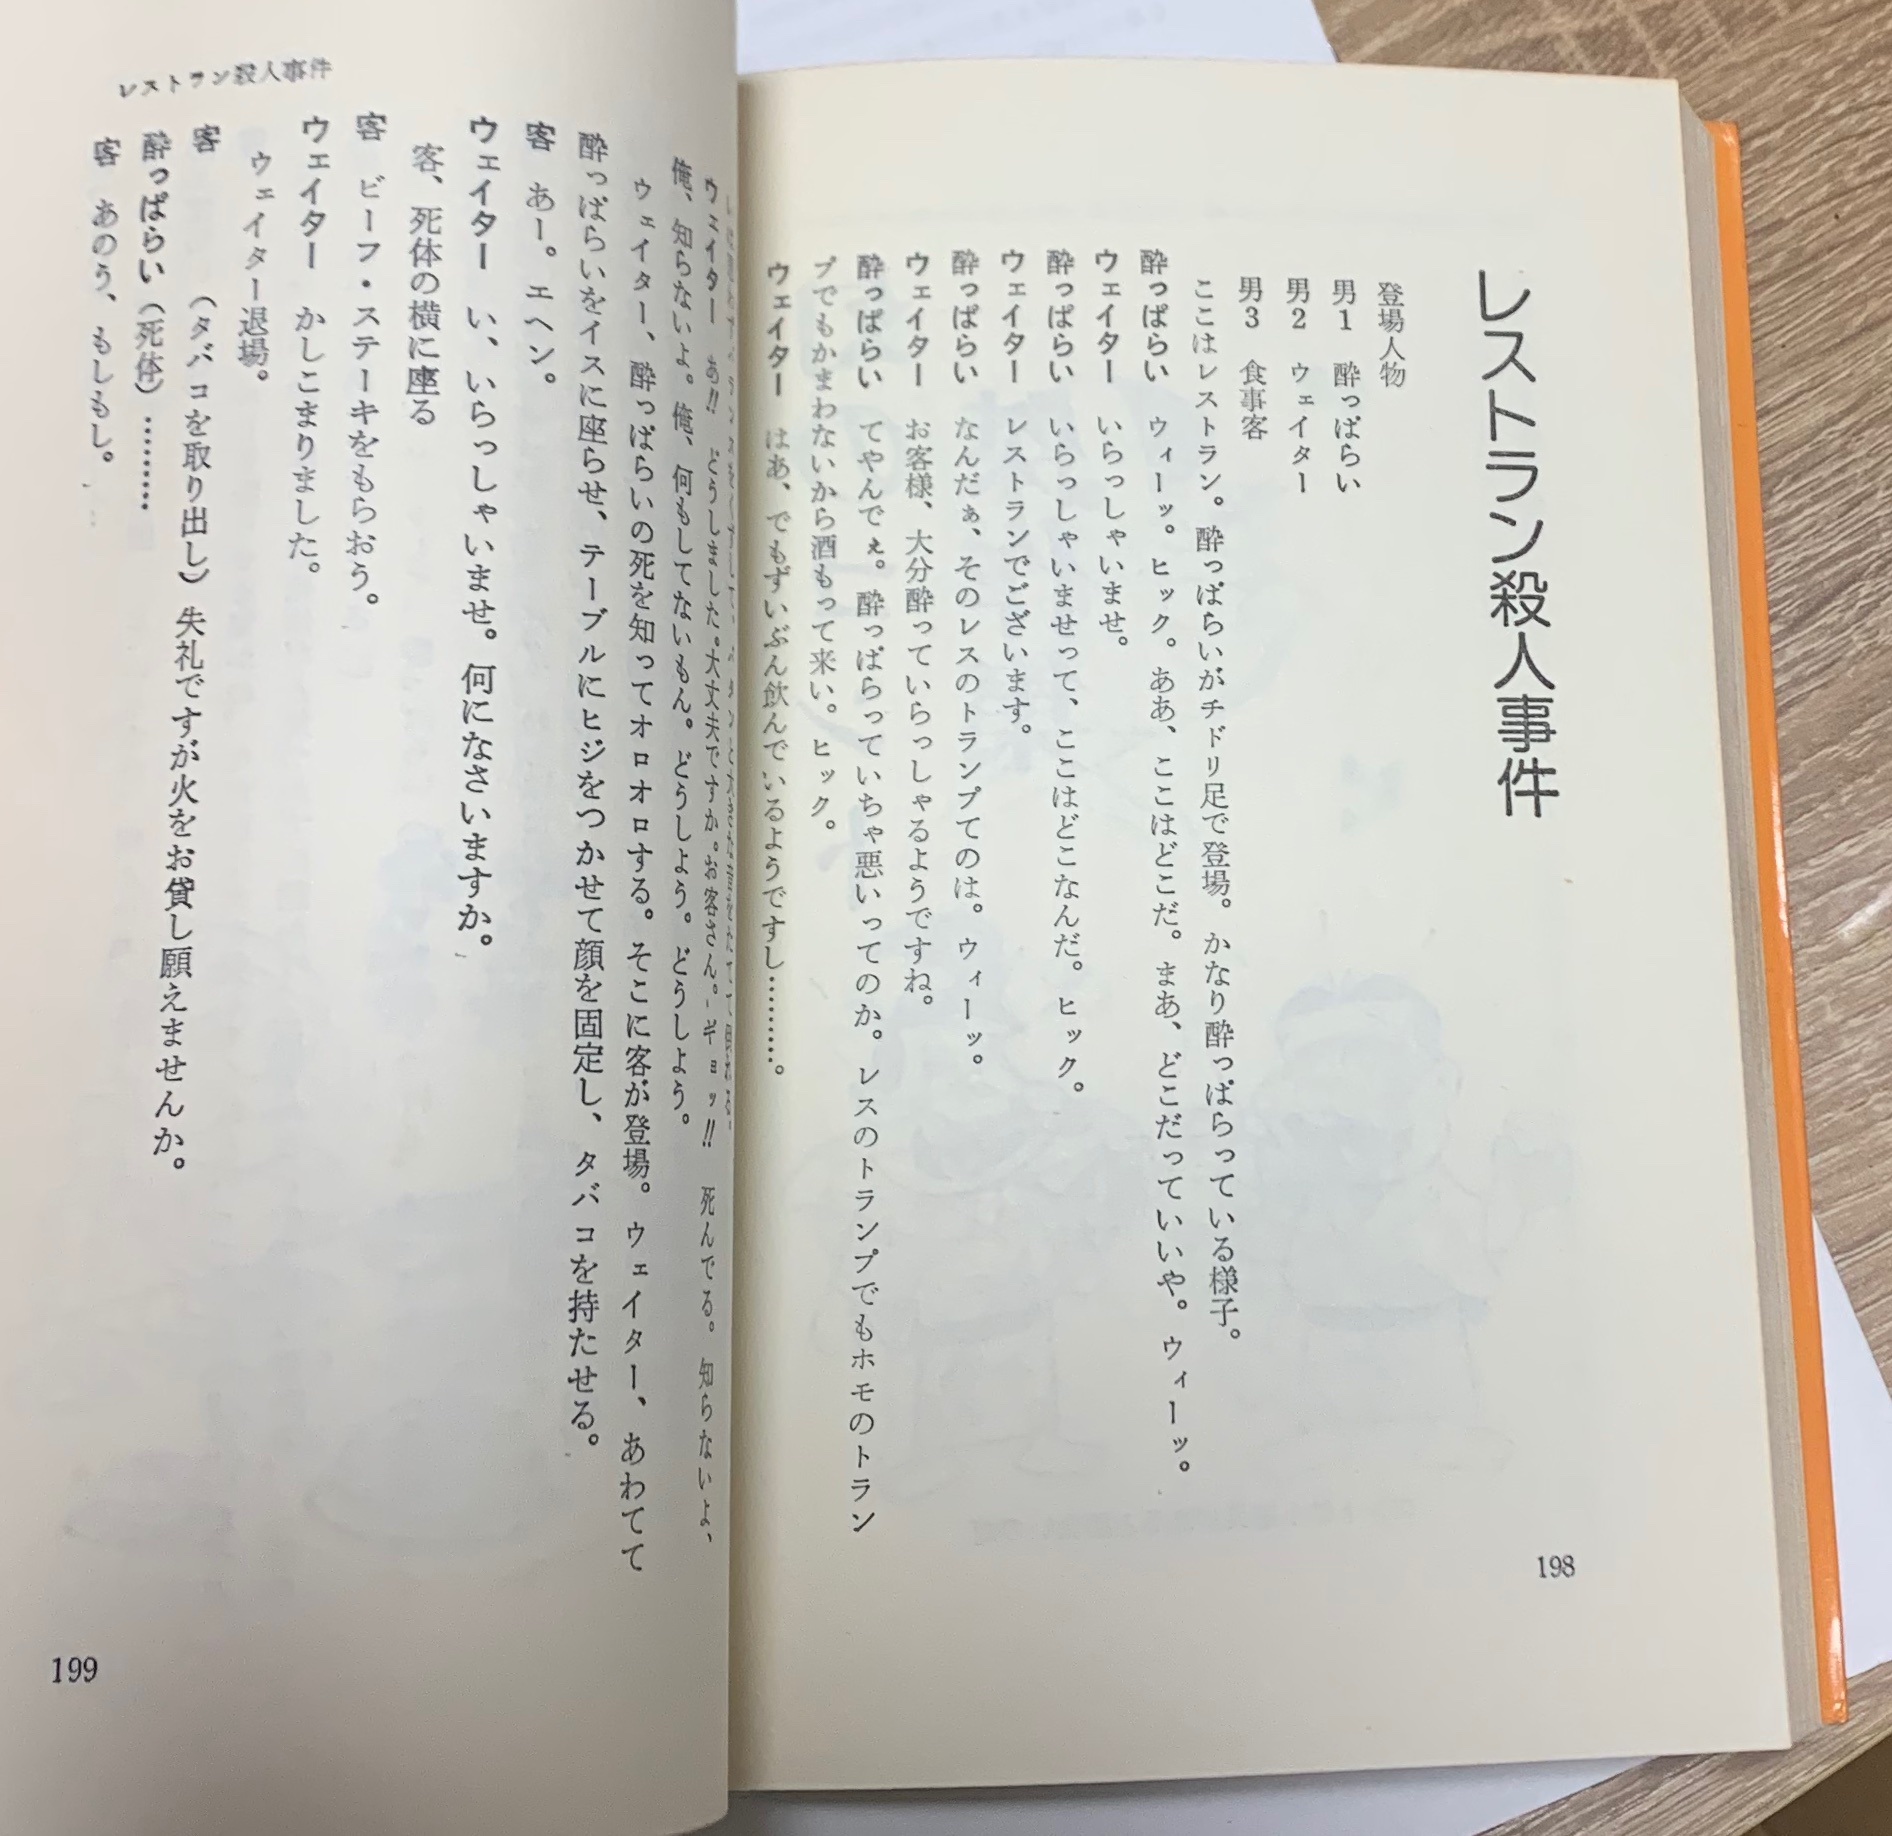 レストラン殺人事件
登場人物
男1 酔っぱらい
男2 ウェイター
男3 食事客
ここはレストラン。酔っぱらいがチドリ足で登場。かなり酔っぱらっている様子。
酔っぱらい ウィーッ。ヒック。ああ、ここはどこだ。まあ、どこだっていいや。ウィーッ。
ウェイター いらっしゃいませ。
酔っぱらい いらっしゃいませって、ここはどこなんだ。ヒック。
ウェイター レストランでございます。
酔っぱらい なんだぁ、そのレスのトランプてのは。ウィーッ。
ウェイター お客様、大分酔っていらっしゃるようですね。
酔っぱらい てやんでぇ。酔っぱらっていちゃ悪いってのか。レスのトランプでもホモのトラン
プでもかまわないから酒もって来い。ヒック。
ウェイター はあ、でもずいぶん飲んでいるようですし………。
198
レストラン殺人事件
ウェイター あ!! どうしました。大丈夫ですか。お客さん。ギョッ!! 死んでる。知らないよ、
俺、知らないよ。俺、何もしてないもん。どうしよう。どうしよう。
ウェイター、酔っぱらいの死を知ってオロオロする。そこに客が登場。ウェイター、あわてて
酔っぱらいをイスに座らせ、テーブルにヒジをつかせて顔を固定し、タバコを持たせる。
客 あー。エヘン。
ウェイター い、いらっしゃいませ。何になさいますか。
客、死体の横に座る
客 ビーフ・ステーキをもらおう。
ウェイター かしこまりました。
ウェイター退場。
客 （タバコを取り出し）失礼ですが火をお貸し願えませんか。
酔っぱらい（死体）………
客 あのう、もしもし。
199